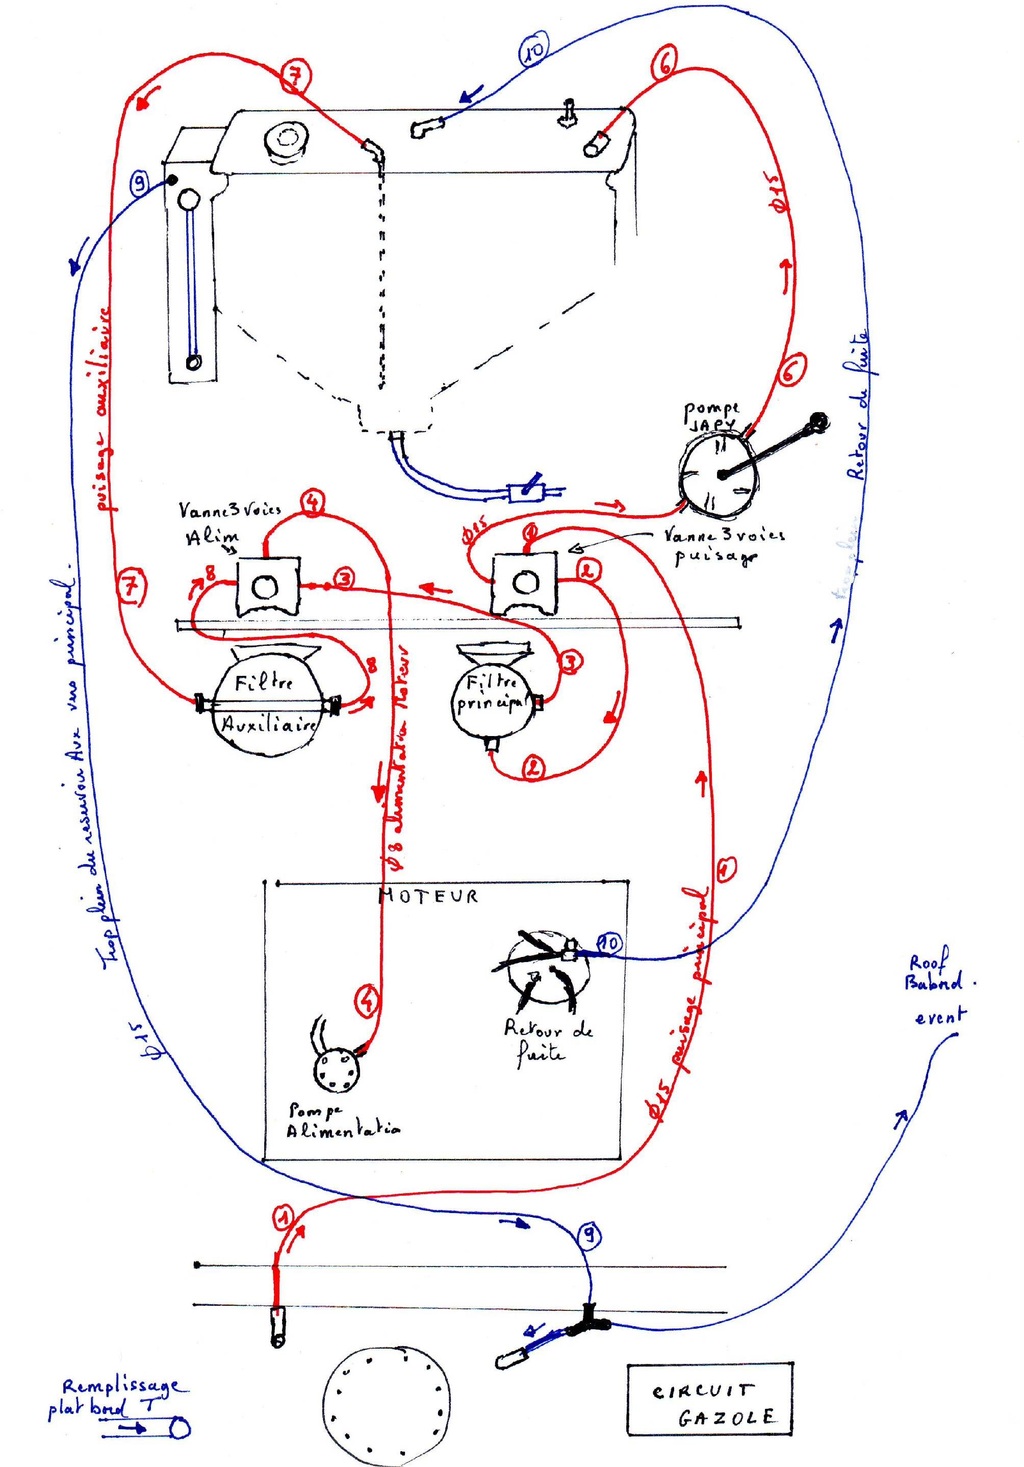 10
6
7
9
φ15
puisage auxiliaire
Retour de fuite
6
pompe
JAPY
Vanne 3 voies
Alim
4
φ15
1
Vanne 3 voies
puisage
7
8
3
2
Filtre
Auxiliaire
8
Filtre
principal
3
2
Trop plein du reservoir Aux vers principal.
φ8 alimentation Moteur
1
MOTEUR
10
4
Retour de
fuite
Pompe
Alimentatio
φ15 puisage principal
φ15
Roof
Babord.
event
1
9
Remplissage
plat bord T
CIRCUIT
GAZOLE